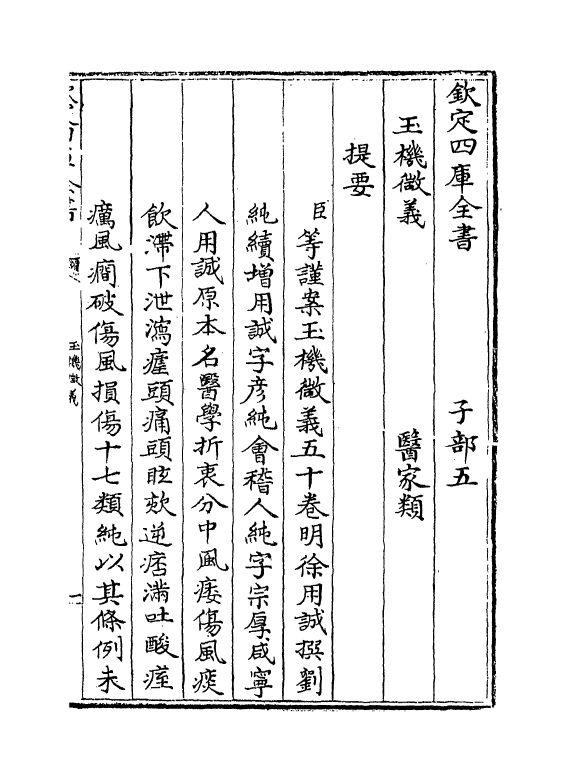 欽定四庫全書　　　　子部五
玉機微義　　　　　　醫家類
提要
臣等謹案玉機微義五十卷明徐用誠撰劉
純續增用誠字彦純會稽人純字宗厚咸寧
人用誠原本名醫學折衷分中風痿傷風痰
飲滯下泄瀉瘧頭痛頭眩欬逆痞滿吐酸痓
癘風癇破傷風損傷十七類純以其條例未
玉機微義
一